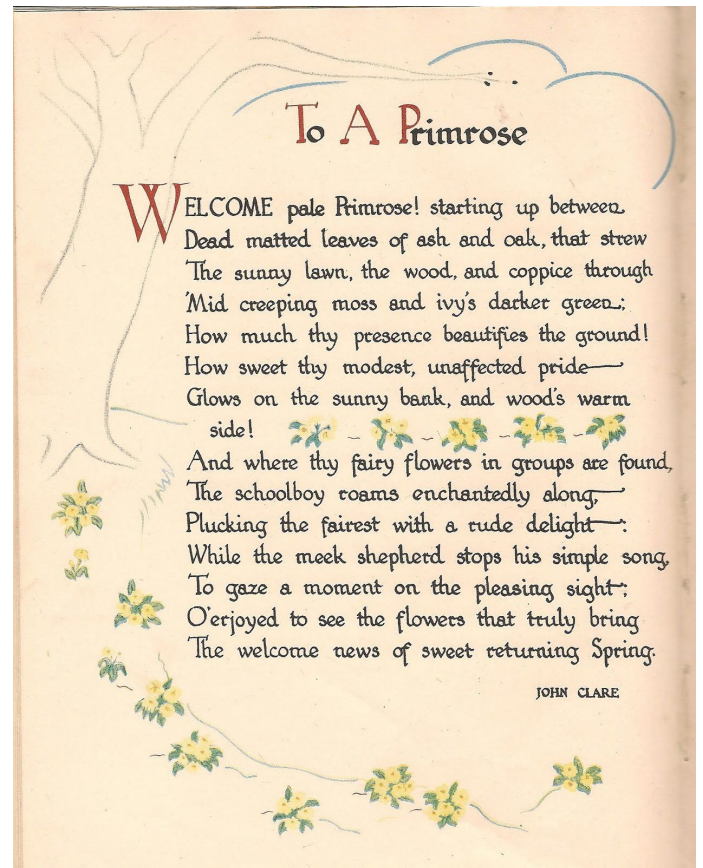 To A Primrose
WELCOME pale Primrose! starting up between
Dead matted leaves of ash and oak, that strew
The sunny lawn, the wood, and coppice through
'Mid creeping moss and ivy's darker green;
How much thy presence beautifies the ground!
How sweet thy modest, unaffected pride
Glows on the sunny bank, and wood's warm
side!
And where thy fairy flowers in groups are found,
The schoolboy roams enchantedly along,
Plucking the fairest with a rude delight:
While the meek shepherd stops his simple song,
To gaze a moment on the pleasing sight;
O'erjoyed to see the flowers that truly bring
The welcome news of sweet returning Spring.
JOHN CLARE